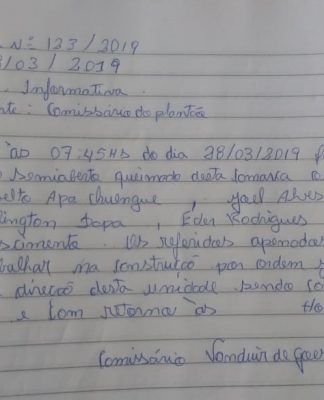 Nº 123/2019
/03/2019
. Informativa.
te: Comissário do plantão
às 07:45Hs do dia 28/03/2019
semiaberto queimado desta comarca o
Apa Chuengue, Joel Alves
lington Dapa, Eder Rodrigues
scimento. Os referidos apenados
balhar na construção por ordem
direção desta unidade sendo
e com retorno às Ho
Comissário Vanduir de